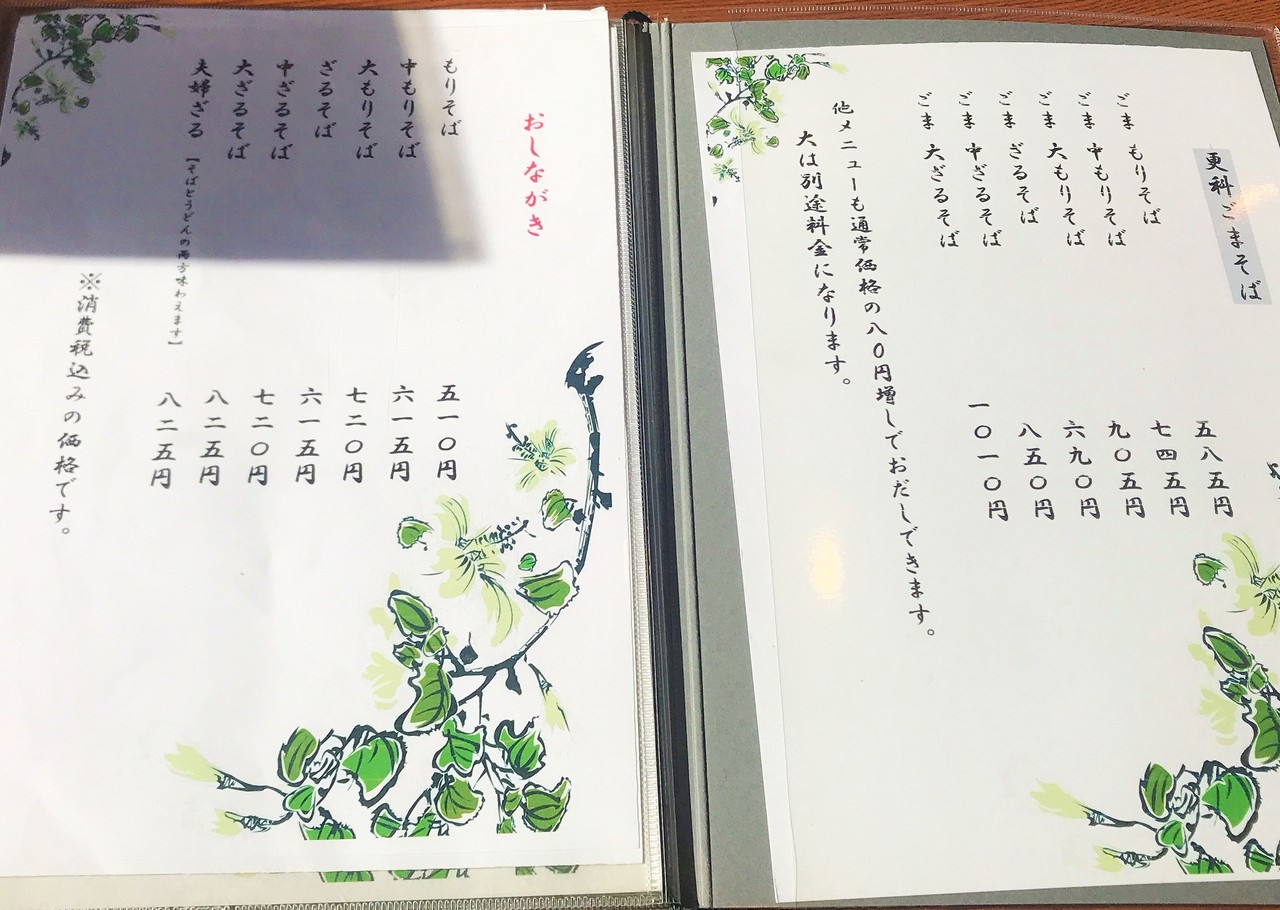 更科ごまそば
ごま もりそば 五八五円
ごま 中もりそば 七四五円
ごま 大もりそば 九〇五円
ごま ざるそば 六九〇円
ごま 中ざるそば 八五〇円
ごま 大ざるそば 一〇一〇円
他メニューも通常価格の八〇円増しでおだしできます。
大は別途料金になります。
おしながき
もりそば 五一〇円
中もりそば 六一五円
大もりそば 七二〇円
ざるそば 六一五円
中ざるそば 七二〇円
大ざるそば 八二五円
夫婦ざる 八二五円
【そばとうどんの両方味わえます】
※消費税込みの価格です。